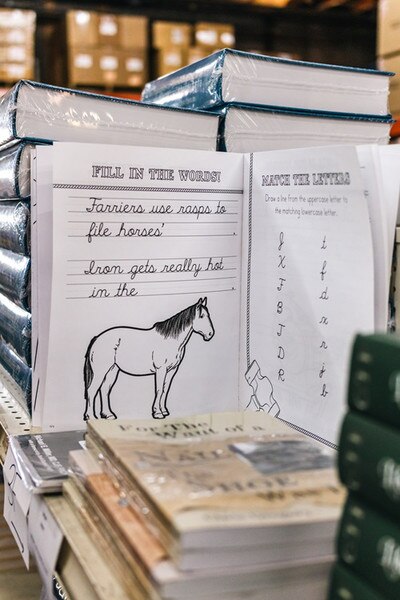 FILL IN THE WORDS!
Farriers use rasps to
file horses' .
Iron gets really hot
in the .
MATCH THE LETTERS
Draw a line from the uppercase letter to
the matching lowercase letter.
J t
X f
F d
B x
T r
D j
R b
For The Want of a
NAIL
SHOE